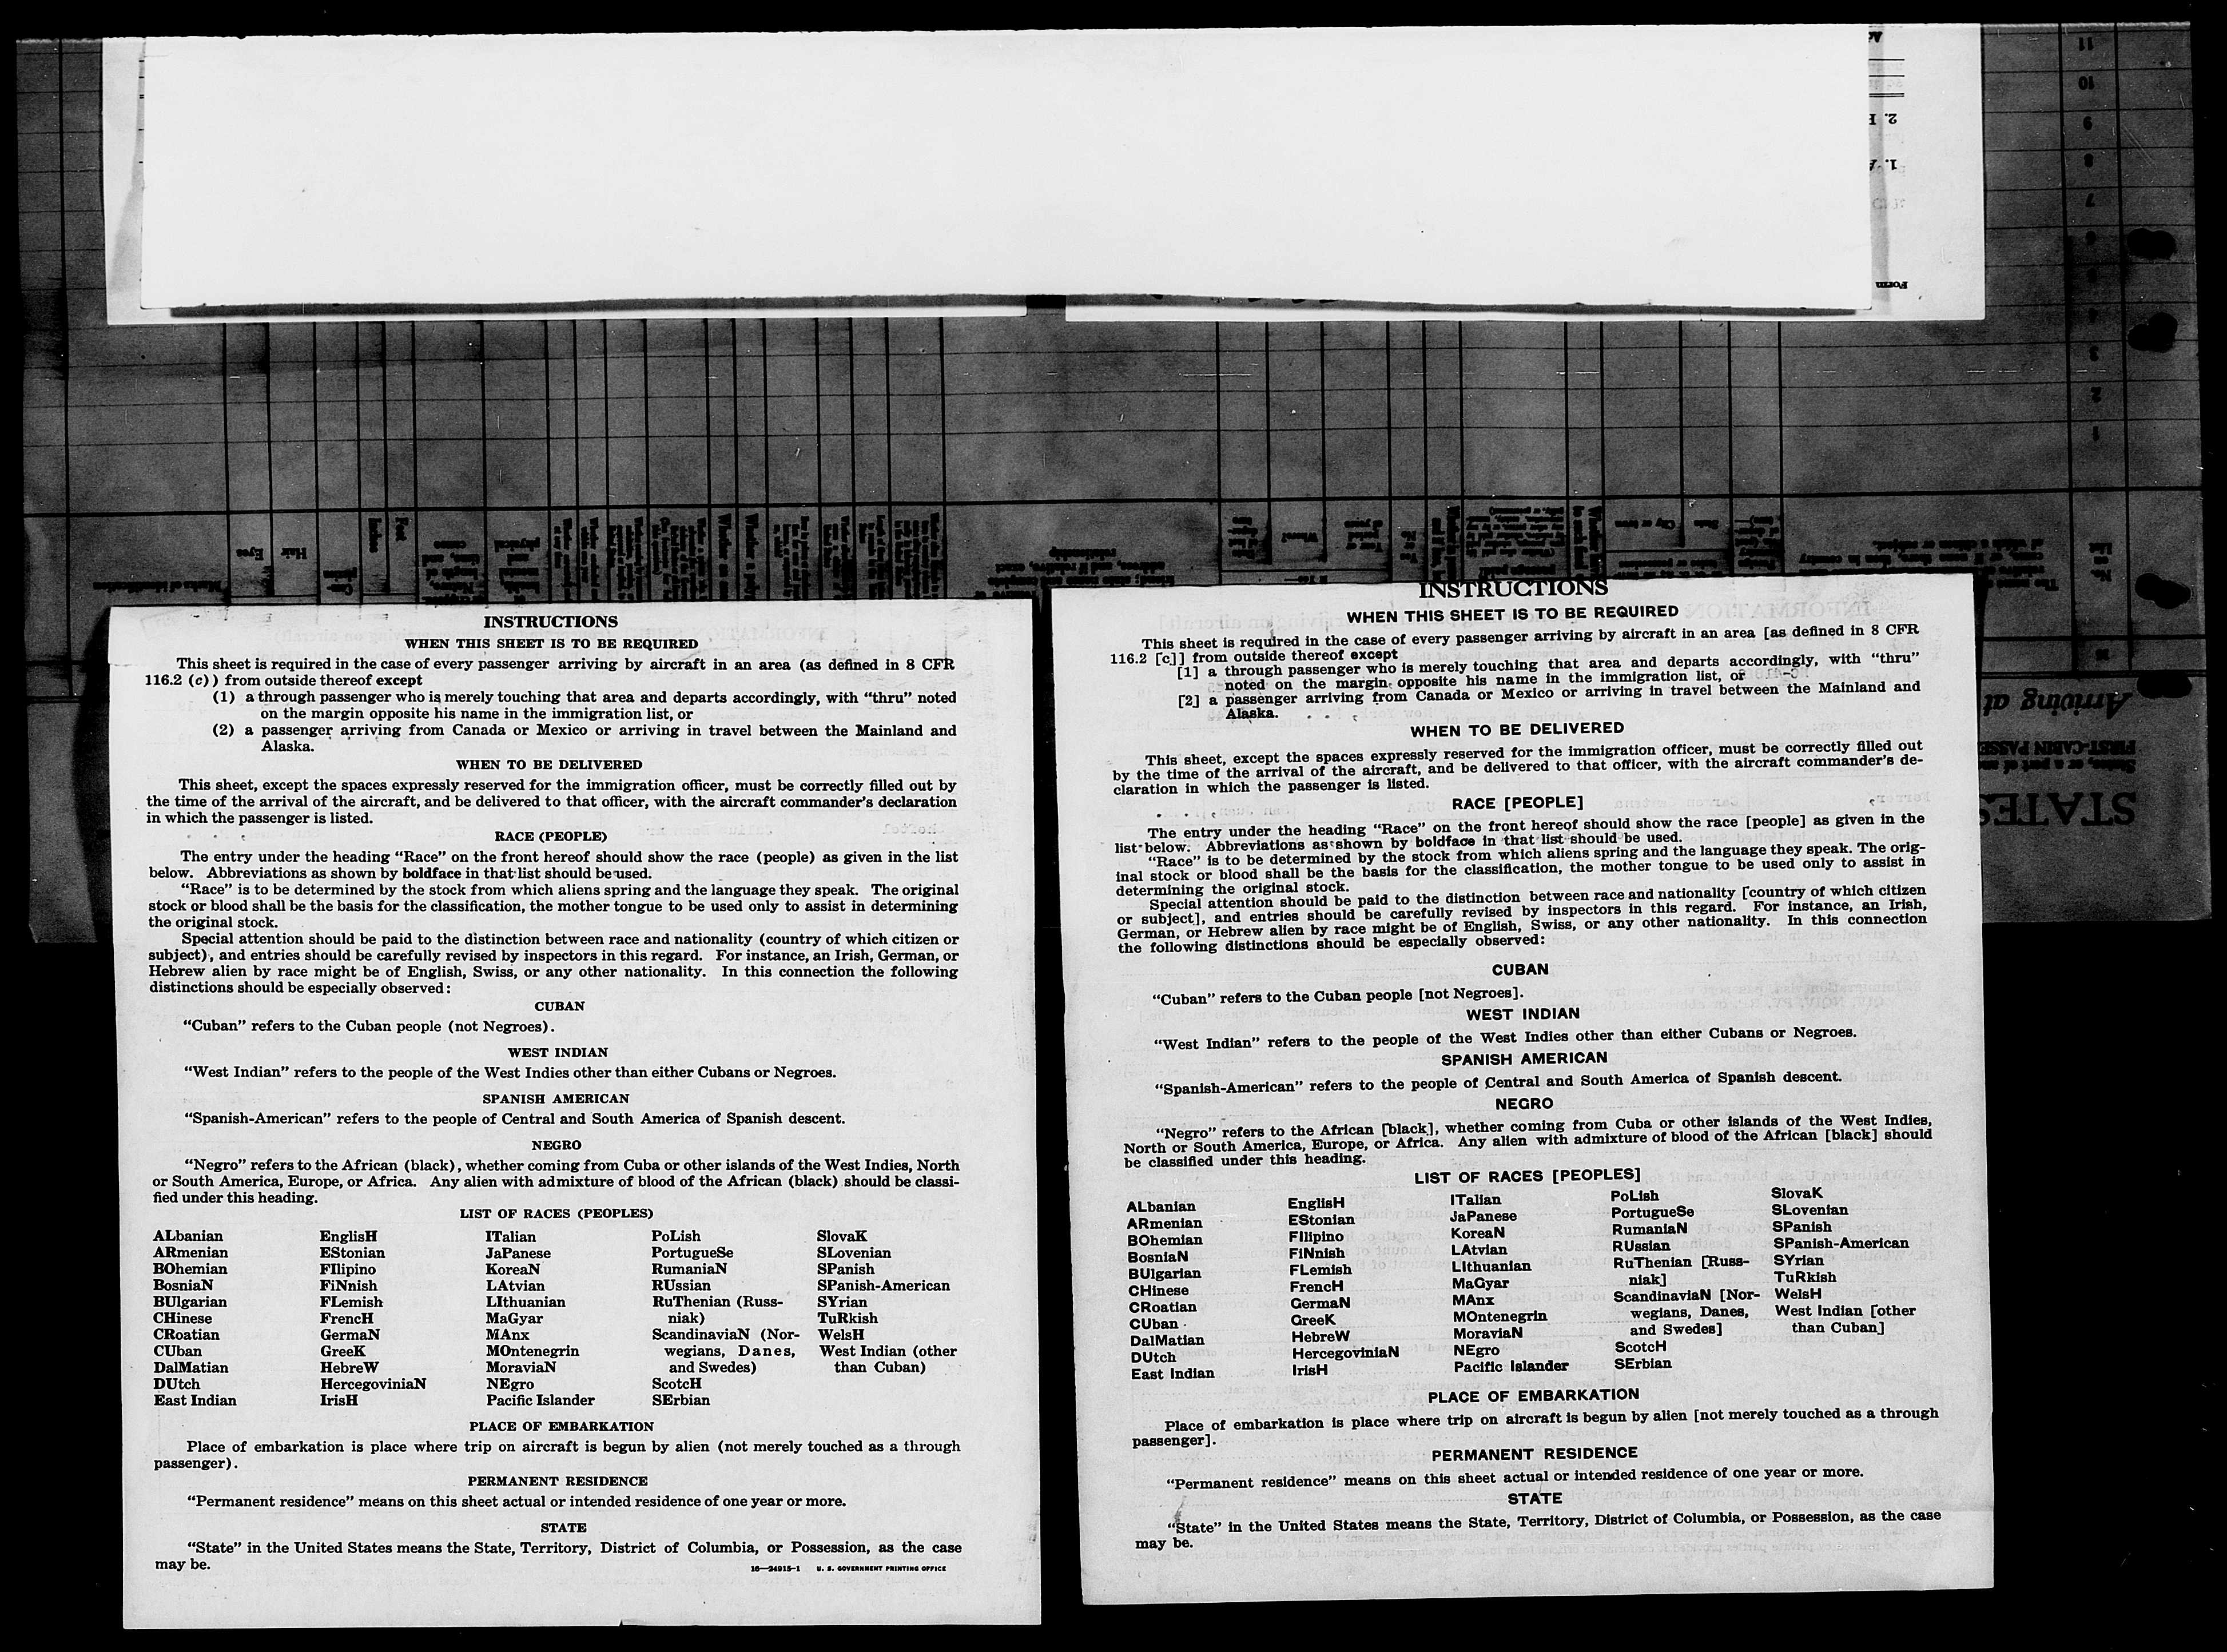 INSTRUCTIONS
WHEN THIS SHEET IS TO BE REQUIRED
This sheet is required in the case of every passenger arriving by aircraft in an area (as defined in 8 CFR
116.2 (c)) from outside thereof except
(1) a through passenger who is merely touching that area and departs accordingly, with “thru” noted
on the margin opposite his name in the immigration list, or
(2) a passenger arriving from Canada or Mexico or arriving in travel between the Mainland and
Alaska.
WHEN TO BE DELIVERED
This sheet, except the spaces expressly reserved for the immigration officer, must be correctly filled out by
the time of the arrival of the aircraft, and be delivered to that officer, with the aircraft commander's declaration
in which the passenger is listed.
RACE (PEOPLE)
The entry under the heading “Race” on the front hereof should show the race (people) as given in the list
below. Abbreviations as shown by boldface in that list should be used.
“Race” is to be determined by the stock from which aliens spring and the language they speak. The original
stock or blood shall be the basis for the classification, the mother tongue to be used only to assist in determining
the original stock.
Special attention should be paid to the distinction between race and nationality (country of which citizen or
subject), and entries should be carefully revised by inspectors in this regard. For instance, an Irish, German, or
Hebrew alien by race might be of English, Swiss, or any other nationality. In this connection the following
distinctions should be especially observed:
CUBAN
“Cuban” refers to the Cuban people (not Negroes).
WEST INDIAN
“West Indian” refers to the people of the West Indies other than either Cubans or Negroes.
SPANISH AMERICAN
“Spanish-American” refers to the people of Central and South America of Spanish descent.
NEGRO
“Negro” refers to the African (black), whether coming from Cuba or other islands of the West Indies, North
or South America, Europe, or Africa. Any alien with admixture of blood of the African (black) should be classi-
fied under this heading.
LIST OF RACES (PEOPLES)
ALbanian EnglisH ITalian PoLish SlovaK
ARmenian EStonian JaPanese PortugueSe SLovenian
BOhemian FIlipino KoreaN RumaniaN SPanish
BosniaN FiNnish LAtvian RUssian SPanish-American
BUlgarian FLemish LIthuanian RuThenian (Russ- SYrian
CHinese FrencH MaGyar niak) TuRkish
CRoatian GermaN MAnx ScandinaviaN (Nor- WelsH
CUban GreeK MOntenegrin wegians, Danes, West Indian (other
DalMatian HebreW MoraviaN and Swedes) than Cuban)
DUtch HercegoviniaN NEgro ScotcH
East Indian IrisH Pacific Islander SErbian
PLACE OF EMBARKATION
Place of embarkation is place where trip on aircraft is begun by alien (not merely touched as a through
passenger).
PERMANENT RESIDENCE
“Permanent residence” means on this sheet actual or intended residence of one year or more.
STATE
“State” in the United States means the State, Territory, District of Columbia, or Possession, as the case
may be.
16—24915-1 U. S. GOVERNMENT PRINTING OFFICE
INSTRUCTIONS
WHEN THIS SHEET IS TO BE REQUIRED
This sheet is required in the case of every passenger arriving by aircraft in an area [as defined in 8 CFR
116.2 [c]] from outside thereof except
[1] a through passenger who is merely touching that area and departs accordingly, with “thru”
noted on the margin opposite his name in the immigration list, or
[2] a passenger arriving from Canada or Mexico or arriving in travel between the Mainland and
Alaska.
WHEN TO BE DELIVERED
This sheet, except the spaces expressly reserved for the immigration officer, must be correctly filled out
by the time of the arrival of the aircraft, and be delivered to that officer, with the aircraft commander's de-
claration in which the passenger is listed.
RACE [PEOPLE]
The entry under the heading “Race” on the front hereof should show the race [people] as given in the
list below. Abbreviations as shown by boldface in that list should be used.
“Race” is to be determined by the stock from which aliens spring and the language they speak. The orig-
inal stock or blood shall be the basis for the classification, the mother tongue to be used only to assist in
determining the original stock.
Special attention should be paid to the distinction between race and nationality [country of which citizen
or subject], and entries should be carefully revised by inspectors in this regard. For instance, an Irish,
German, or Hebrew alien by race might be of English, Swiss, or any other nationality. In this connection
the following distinctions should be especially observed:
CUBAN
“Cuban” refers to the Cuban people [not Negroes].
WEST INDIAN
“West Indian” refers to the people of the West Indies other than either Cubans or Negroes.
SPANISH AMERICAN
“Spanish-American” refers to the people of Central and South America of Spanish descent.
NEGRO
“Negro” refers to the African [black], whether coming from Cuba or other islands of the West Indies,
North or South America, Europe, or Africa. Any alien with admixture of blood of the African [black] should
be classified under this heading.
LIST OF RACES [PEOPLES]
ALbanian EnglisH ITalian PoLish SlovaK
ARmenian EStonian JaPanese PortugueSe SLovenian
BOhemian FIlipino KoreaN RumaniaN SPanish
BosniaN FiNnish LAtvian RUssian SPanish-American
BUlgarian FLemish LIthuanian RuThenian [Russ- SYrian
CHinese FrencH MaGyar niak] TuRkish
CRoatian GermaN MAnx ScandinaviaN [Nor- WelsH
CUban GreeK MOntenegrin wegians, Danes, West Indian [other
DalMatian HebreW MoraviaN and Swedes] than Cuban]
DUtch HercegoviniaN NEgro ScotcH
East Indian IrisH Pacific Islander SErbian
PLACE OF EMBARKATION
Place of embarkation is place where trip on aircraft is begun by alien [not merely touched as a through
passenger].
PERMANENT RESIDENCE
“Permanent residence” means on this sheet actual or intended residence of one year or more.
STATE
“State” in the United States means the State, Territory, District of Columbia, or Possession, as the case
may be.
Form
11
10
9
8
7
6
3
2
1
Eyes
Hair
Inches
Feet
Arriving at
STATES